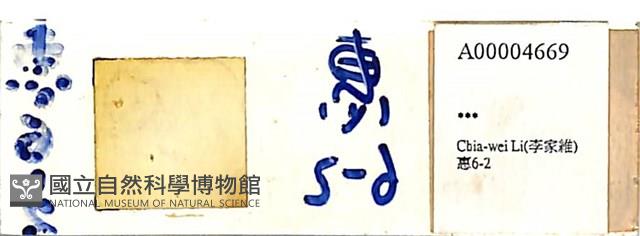 惠
6-2
A00004669
***
Chia-wei Li(李家維)
惠6-2
國立自然科學博物館
NATIONAL MUSEUM OF NATURAL SCIENCE